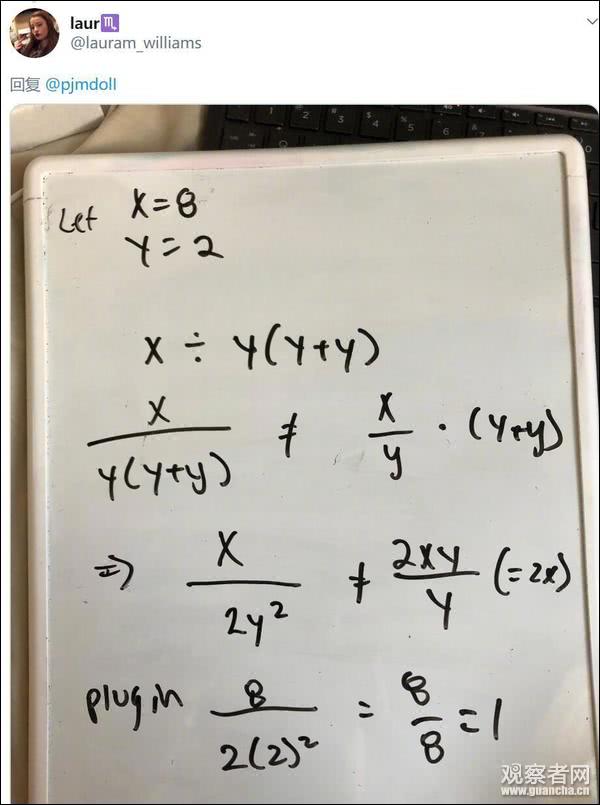 laur♏
@lauram_williams
回复 @pjmdoll
Let x=8
y=2
x ÷ y(y+y)
x/y(y+y) ≠ x/y · (y+y)
⇒ x/2y² ≠ 2xy/y (=2x)
plug in 8/2(2)² = 8/8 = 1
观察者网
www.guancha.cn